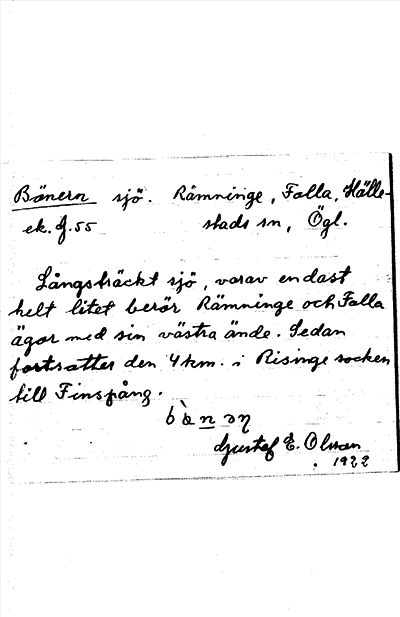 Bönern sjö. Rämninge, Falla, Hälle-
ek. f. 55 stads sn, Ögl.
Långsträckt sjö, varav endast
helt litet berör Rämninge och Falla
ägor med sin västra ände. Sedan
fortsätter den 4 km. i Risinge socken
till Finspång.
Gustaf E. Olsson
1922